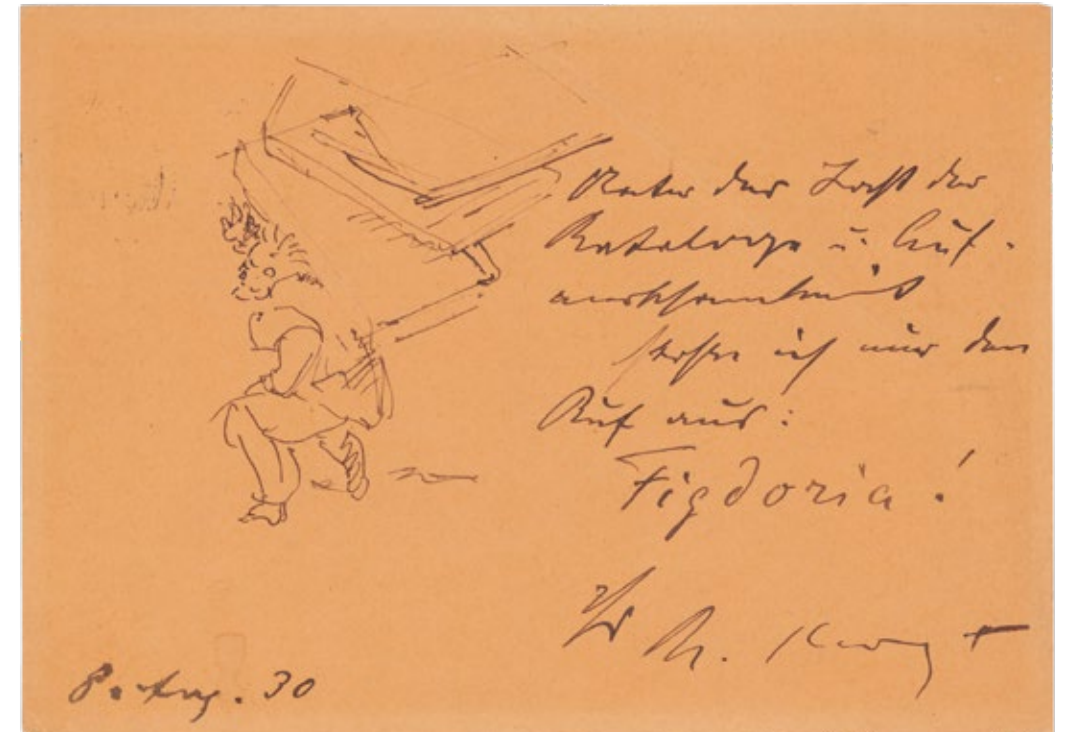 Unter der Last der
Kataloge u. Auf-
merksamkeit
stoße ich nur den
Ruf aus:
Figdoria!
Ihr
8. Aug. 30